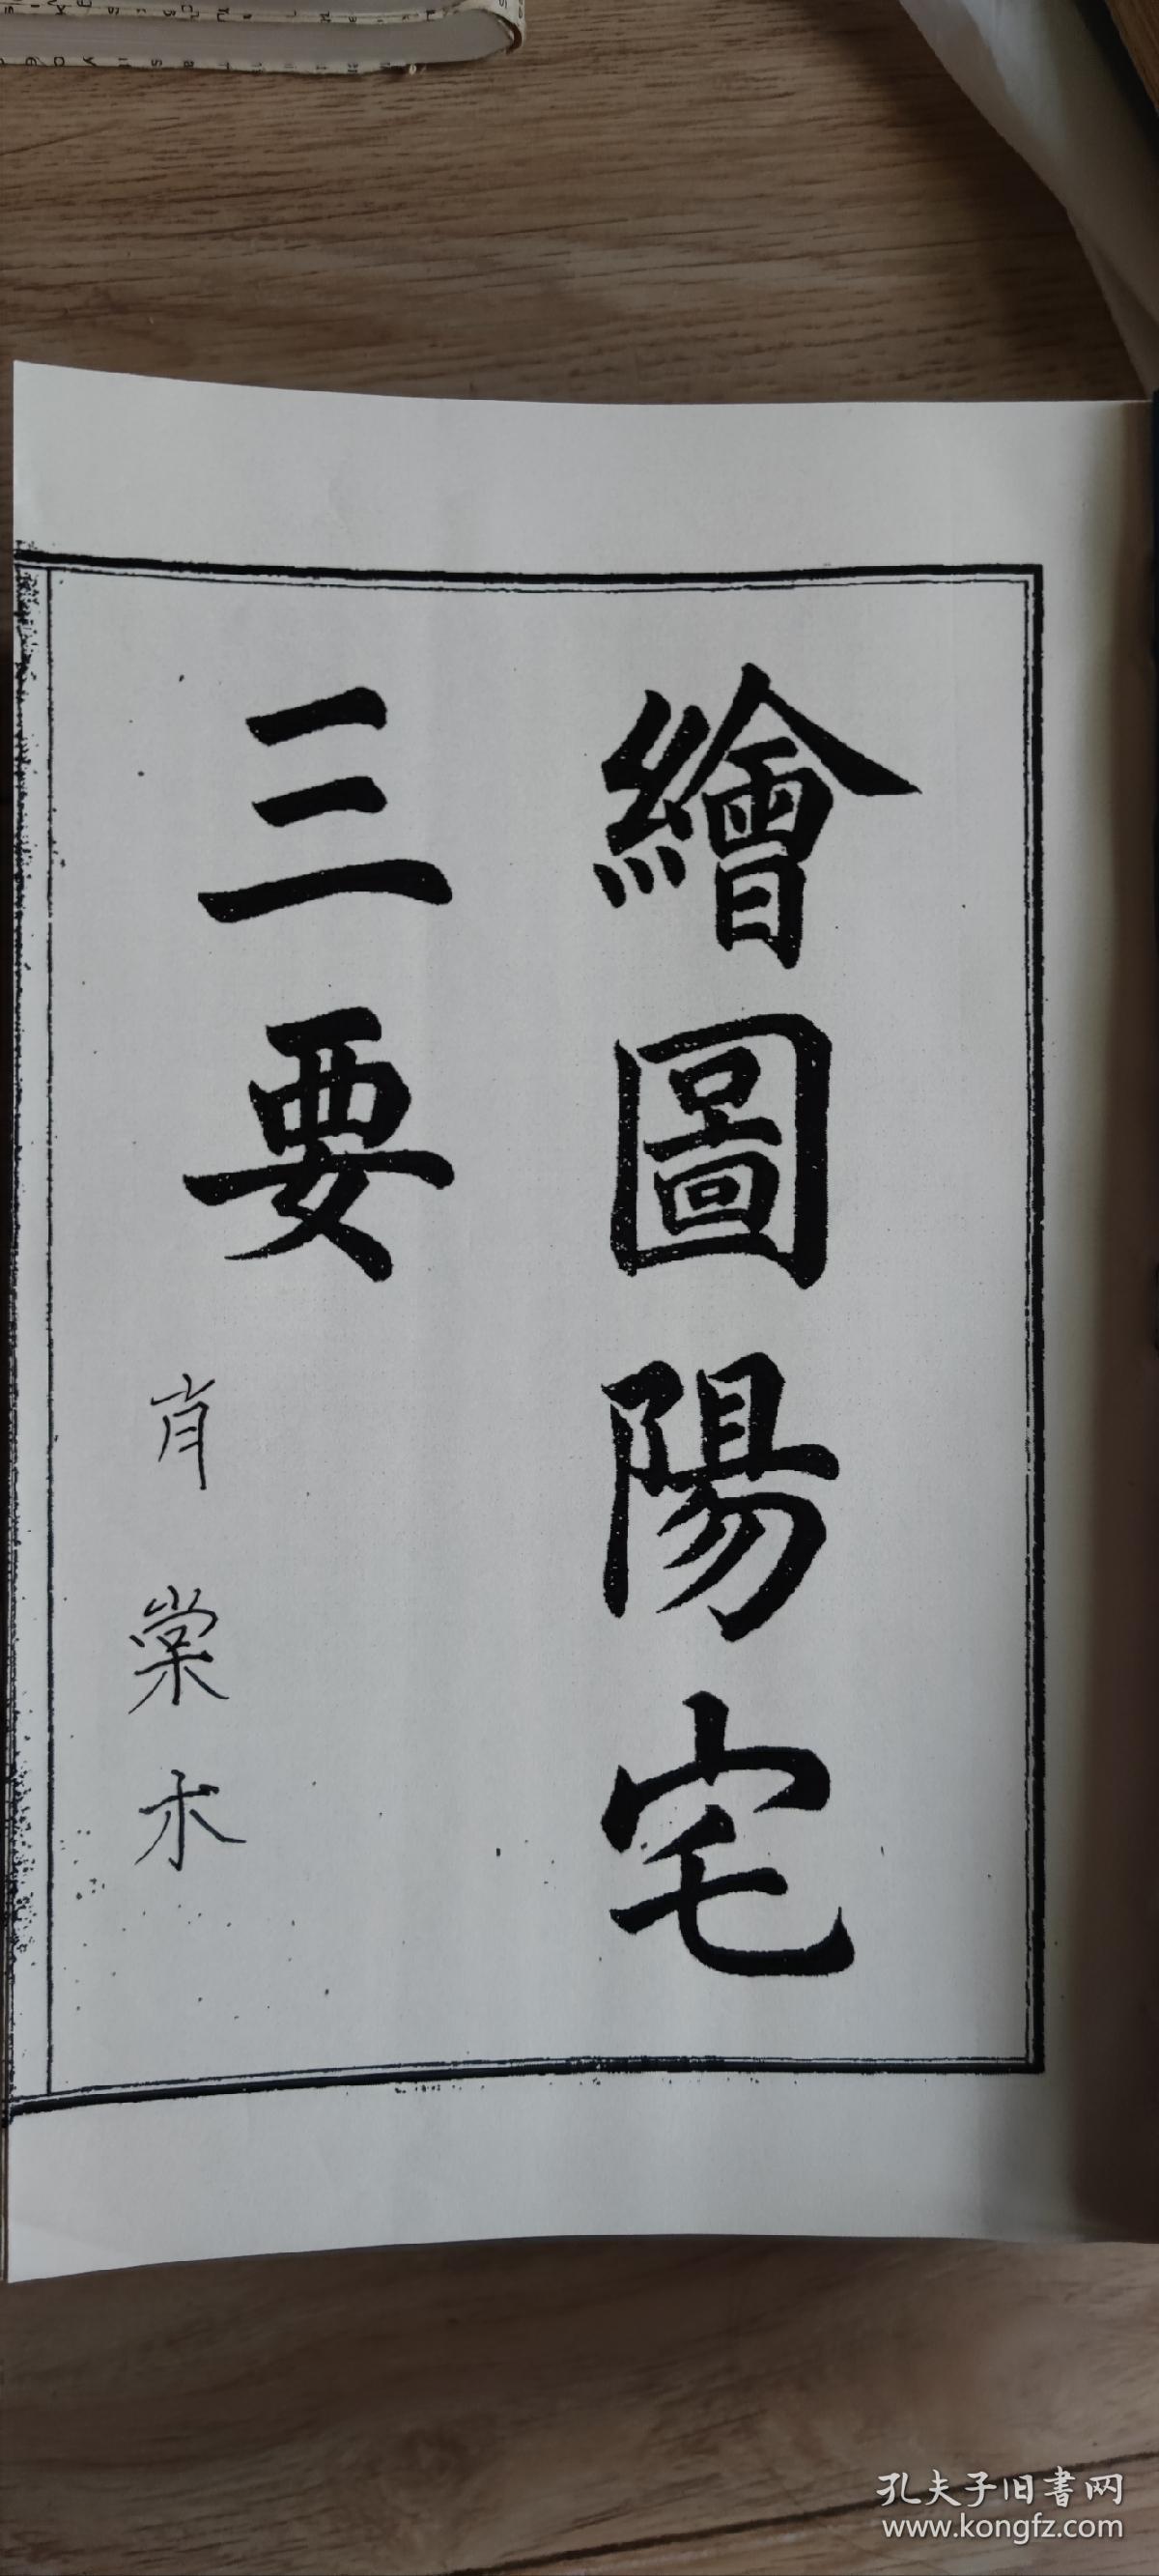 繪圖陽宅
三要
肖棠木
孔夫子旧書网
www.kongfz.com